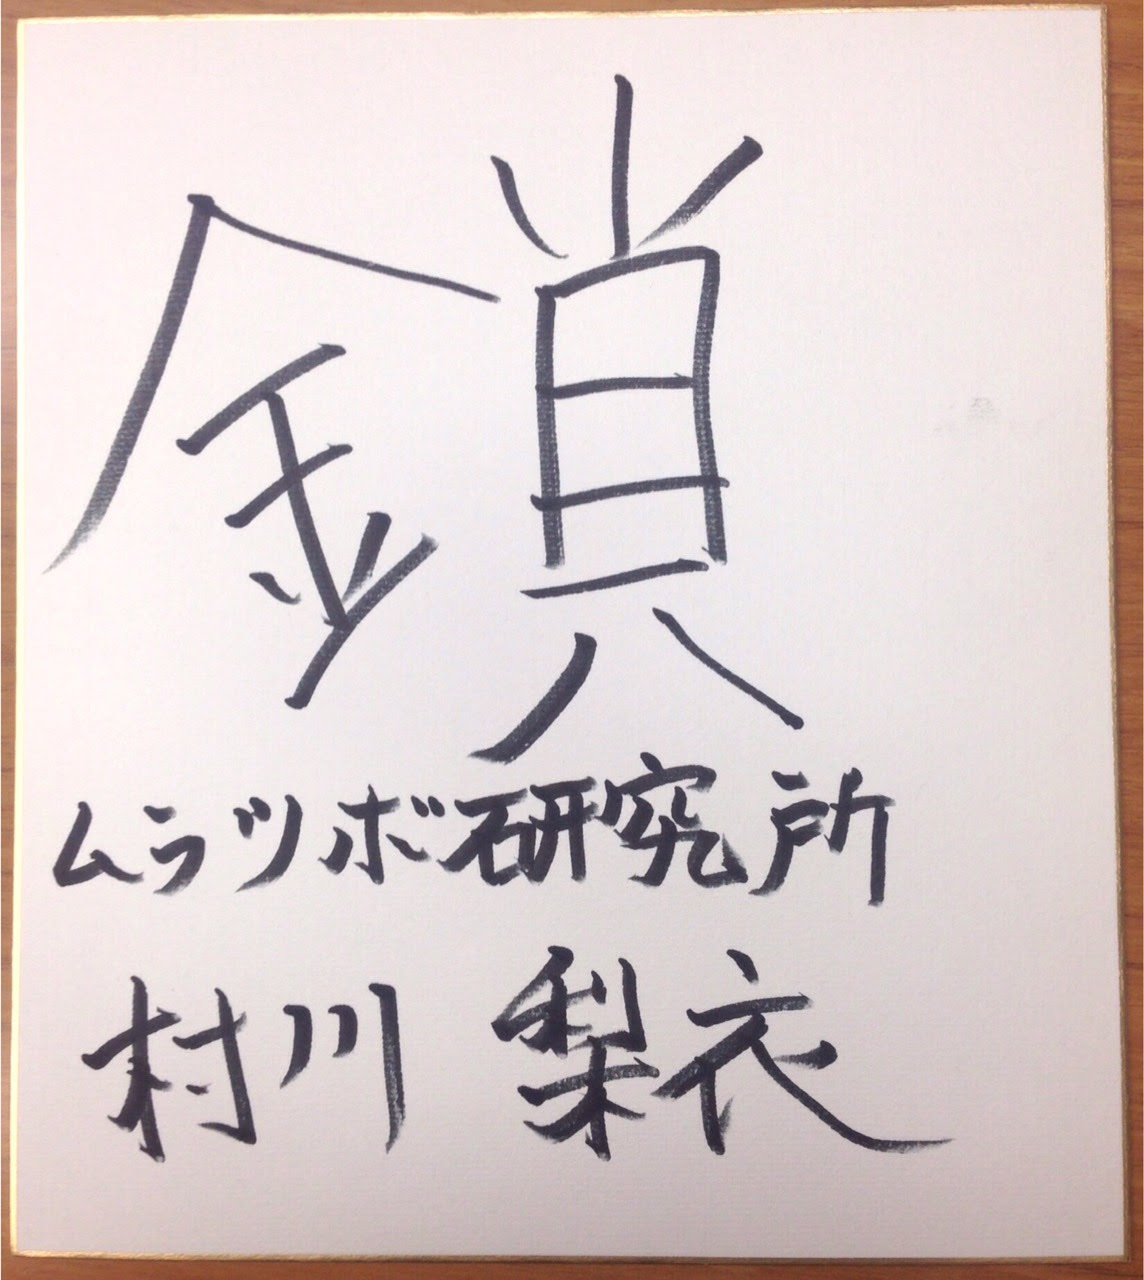 鎖
ムラツボ研究所
村川 梨衣